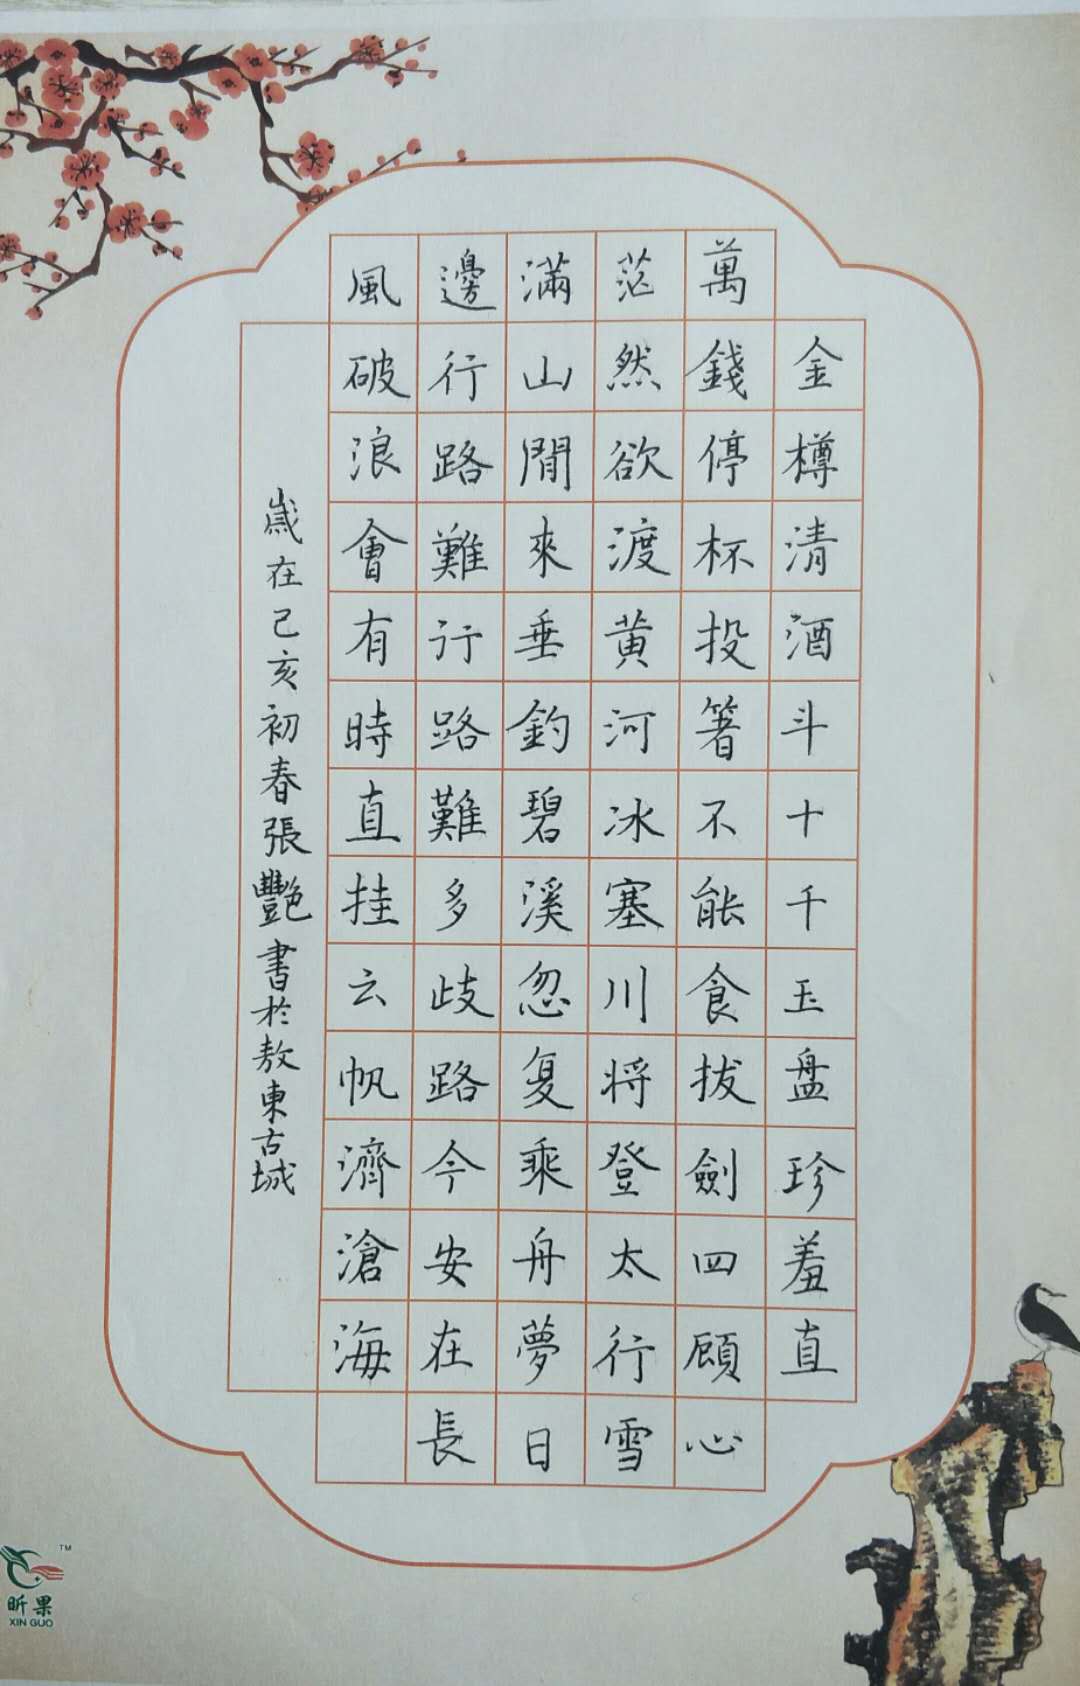 金樽清酒斗十千玉盘珍羞直
萬錢停杯投箸不能食拔劍四顧心
茫然欲渡黄河冰塞川将登太行雪
滿山閒來垂釣碧溪忽复乘舟夢日
邊行路難行路難多歧路今安在長
風破浪會有時直挂云帆濟滄海
歲在己亥初春張艷書於敖東古城
昕果
XIN GUO
TM